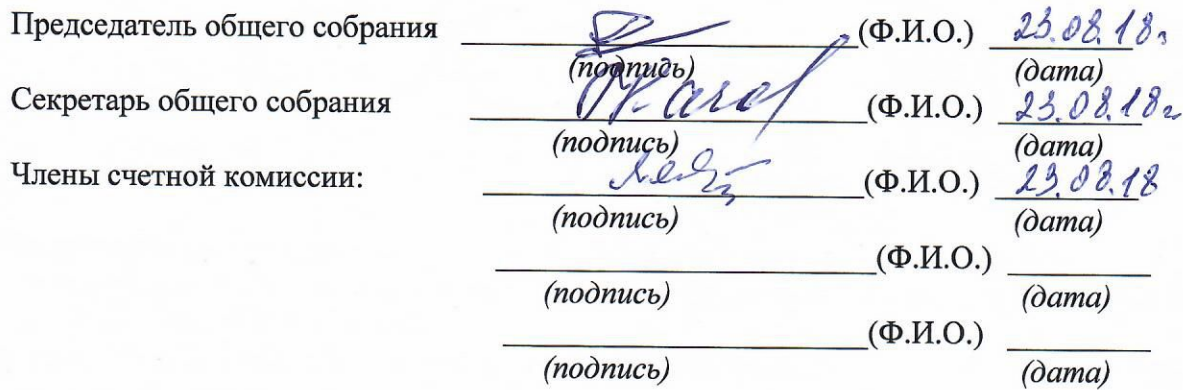 Председатель общего собрания (Ф.И.О.) 23.08.18г
(подпись) (дата)
Секретарь общего собрания (Ф.И.О.) 23.08.18г
(подпись) (дата)
Члены счетной комиссии: (Ф.И.О.) 23.08.18
(подпись) (дата)
(Ф.И.О.)
(подпись) (дата)
(Ф.И.О.)
(подпись) (дата)